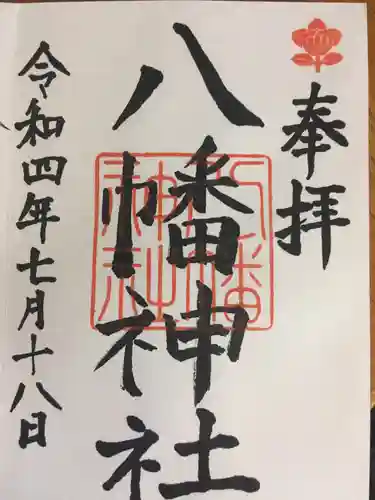 奉拝
八幡神社
八幡
神社
令和四年七月十八日